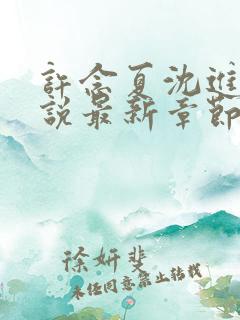 許念夏沈進
説最新章節
徐妍斐
未经同意禁止转载